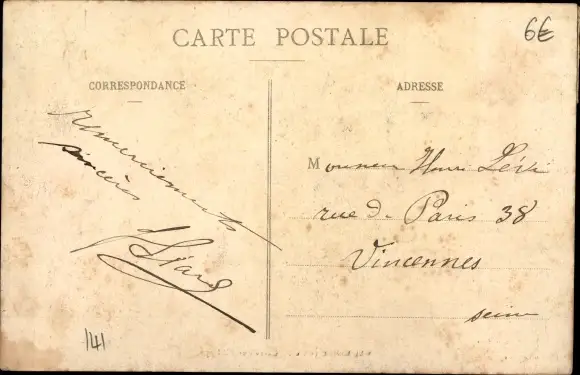 CARTE POSTALE
6€
CORRESPONDANCE
ADRESSE
Remerciements
sincères
Monsieur Henri Lévi
rue de Paris 38
Vincennes
Seine
141